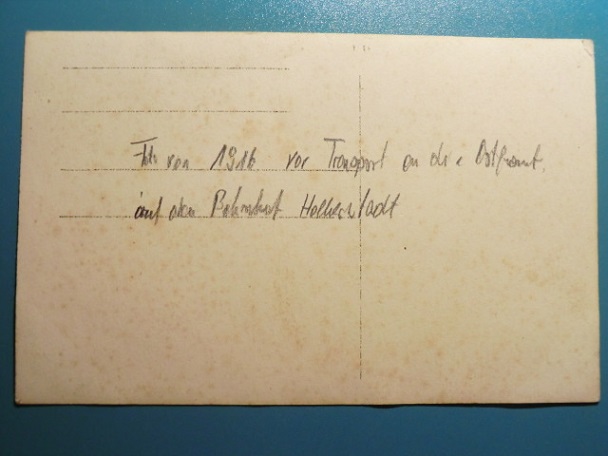 Foto von 1916 vor Transport an die Ostfront,
auf dem Bahnhof Halberstadt